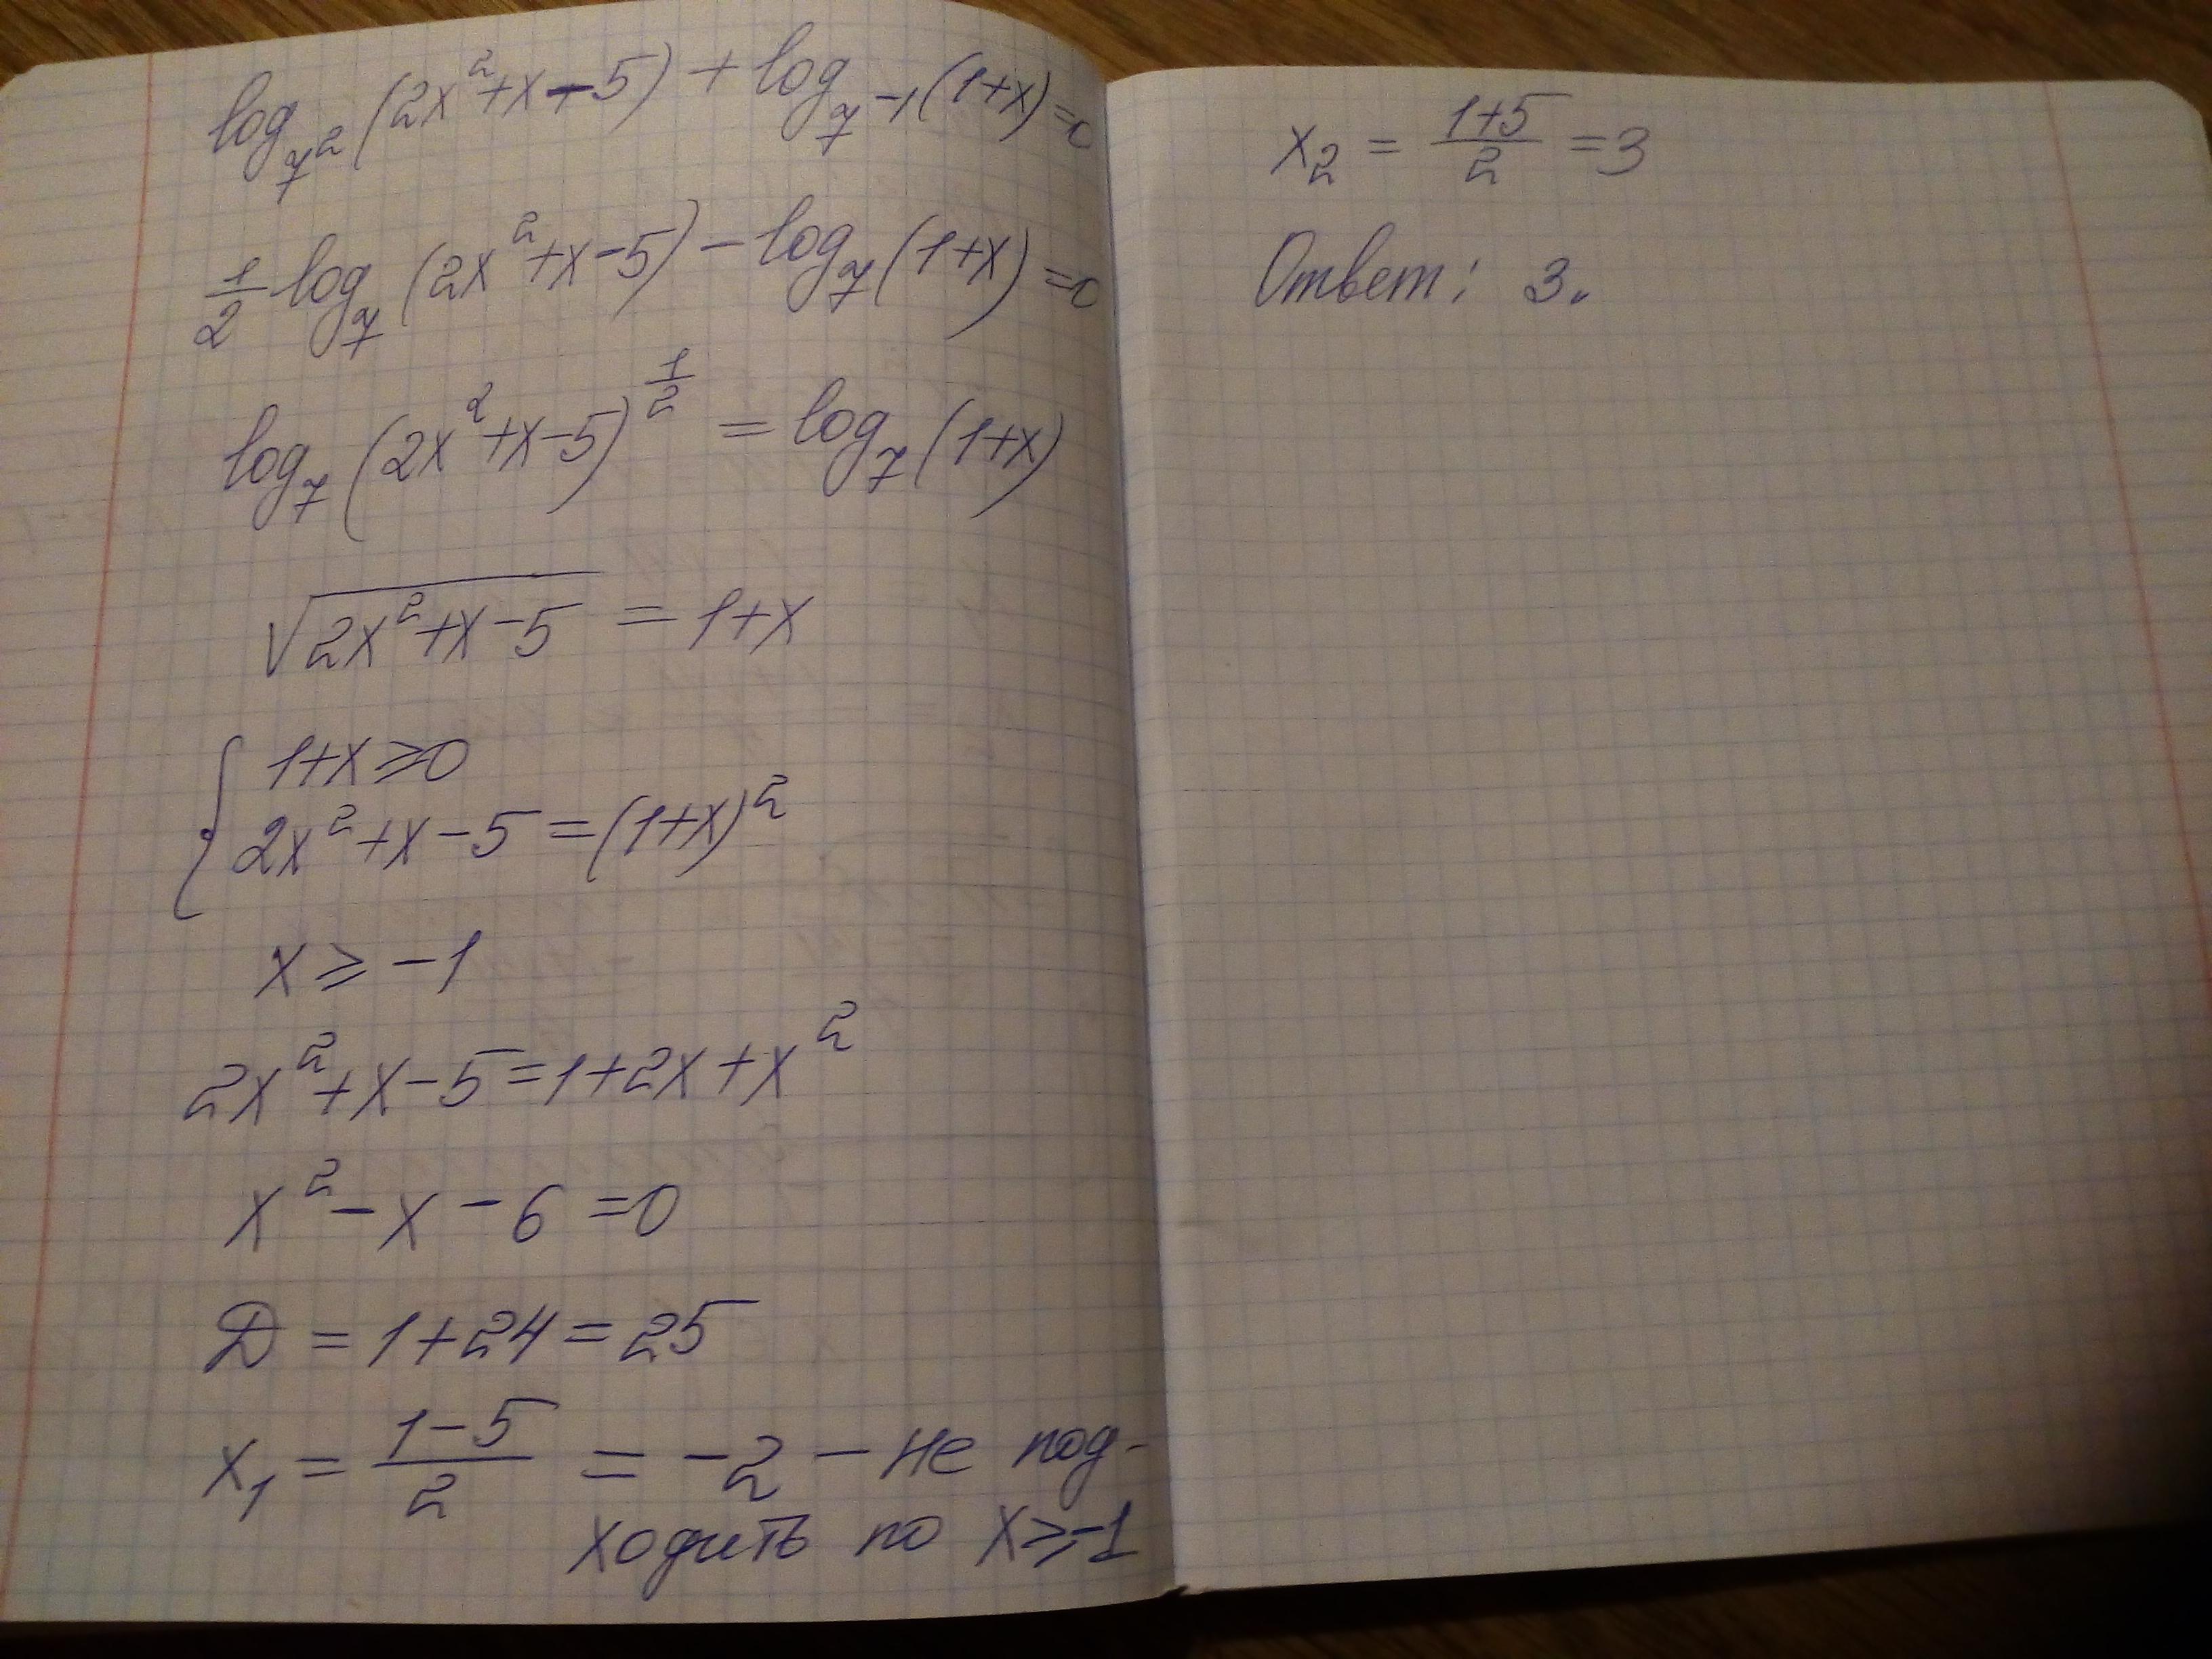 log_{7^2}(2x^2+x-5)+log_{7^{-1}}(1+x)=0
\frac{1}{2}log_7(2x^2+x-5)-log_7(1+x)=0
log_7(2x^2+x-5)^{\frac{1}{2}}=log_7(1+x)
\sqrt{2x^2+x-5}=1+x
{1+x≥0
2x^2+x-5=(1+x)^2
x≥-1
2x^2+x-5=1+2x+x^2
x^2-x-6=0
Д=1+24=25
x_1=\frac{1-5}{2}=-2 - не под-
ходить по x≥-1
x_2=\frac{1+5}{2}=3
Ответ: 3.